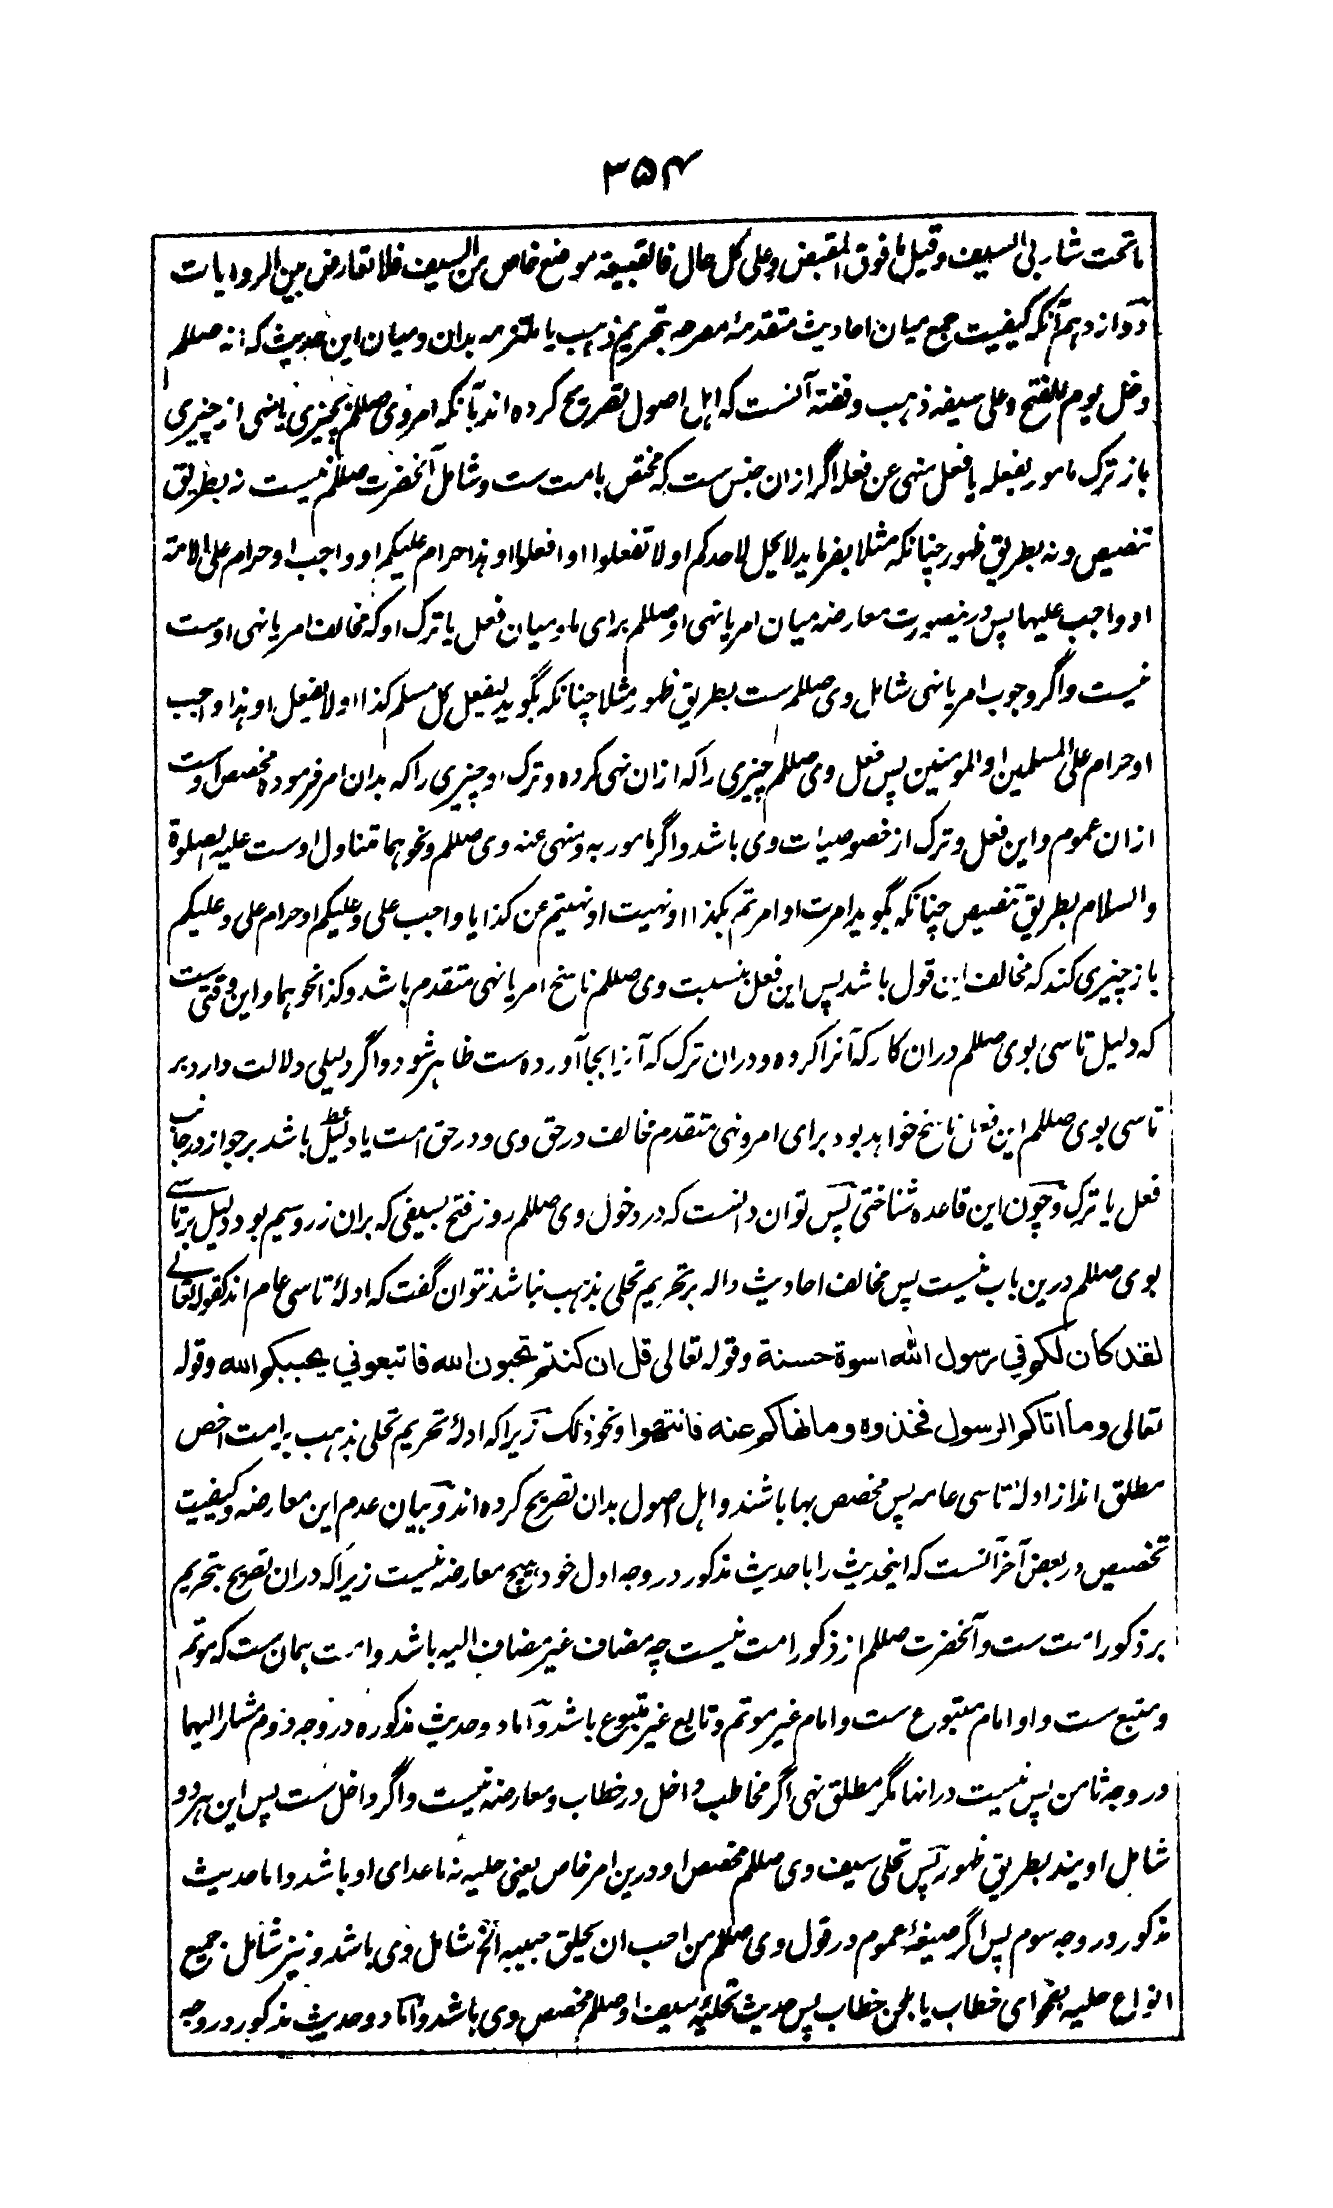 ۳۵۴
ما تحت شاربی السیف و قیل ما فوق المقبض و علی کل حال فالقبیعة موضع خاص من السیف فلا تعارض بین الروایات
دوازدهم آنکه کیفیت جمع میان احادیث متقدمهٔ مصرحه بتحریم ذهب یا ملتزمه بدان و میان این حدیث که انه صللم
دخل یوم الفتح و علی سیفه ذهب و فضة آنست که اهل اصول تصریح کرده اند بآنکه امر وی صللم بچیزی یا نهی از چیزی
باز ترک مامور بفعله یا فعل منهی عن فعله اگر ازان جنس ست که مختص بامت ست و شامل آنحضرت صللم نیست نه بطریق
تنصیص و نه بطریق ظهور چنانکه مثلا بفرماید لا یحل لاحدکم او لا تفعلوا او افعلوا او هذا حرام علیکم او واجب او حرام علی الامة
او واجب علیها پس درینصورت معارضه میان امر یا نهی او صللم برای ما و میان فعل یا ترک او که مخالف امر یا نهی اوست
نیست و اگر وجوب امر یا نهی شامل وی صللم ست بطریق ظهور مثلا چنانکه بگوید لیفعل کل مسلم کذا او لا یفعل او هذا واجب
او حرام علی المسلمین او المومنین پس فعل وی صللم چیزی را که ازان نهی کرده و ترک او چیزی را که بدان امر فرموده مخصص اوست
ازان عموم و این فعل و ترک از خصوصیات وی باشد و اگر مامور به و منهی عنه وی صللم و نحوهما متناول اوست علیه الصلوة
و السلام بطریق تنصیص چنانکه بگوید امرت او امرتم بکذا او نهیت او نهیتم عن کذا یا واجب علی و علیکم او حرام علی و علیکم
باز چیزی کند که مخالف این قول باشد پس این فعل بنسبت وی صللم ناسخ امر یا نهی متقدم باشد و کذا نحوهما و این وقتی ست
که دلیل تاسی بوی صللم دران کار که آنرا کرده و دران ترک که آنرا بجا آورده ست ظاهر شود و اگر دلیلی دلالت دارد بر
تاسی بوی صللم این فعل ناسخ خواهد بود برای امر و نهی متقدم مخالف در حق وی و در حق امت یا دلیل باشد بر جواز در جانب
فعل یا ترک و چون این قاعده شناختی پس توان دانست که در دخول وی صللم روز فتح بسیفی که بران زر و سیم بود دلیل بر تاسی
بوی صللم درین باب نیست پس مخالف احادیث داله بر تحریم تحلی بذهب نباشد نتوان گفت که ادلهٔ تاسی عام اند کقوله تعالی
لقد کان لکم فی رسول الله اسوة حسنة و قوله تعالی قل ان کنتم تحبون الله فاتبعونی یحببکم الله و قوله
تعالی و ما اتاکم الرسول فخذوه و ما نهاکم عنه فانتهوا و نحو ذلک زیرا که ادلهٔ تحریم تحلی بذهب بر امت اخص
مطلق اند از ادلهٔ تاسی عامه پس مخصص بها باشند و اهل اصول بدان تصریح کرده اند و بیان عدم این معارضه و کیفیت
تخصیص در بعض آخر آنست که اینحدیث را با حدیث مذکور در وجه اول خود هیچ معارضه نیست زیرا که دران تصریح بتحریم
بر ذکور امت ست و آنحضرت صللم از ذکور امت نیست چه مضاف غیر مضاف الیه باشد و امت همان ست که موتم
و متبع ست و او امام متبوع ست و امام غیر موتم و تابع غیر متبوع باشد و اما دو حدیث مذکوره در وجه دوم مشار الیهما
در وجه ثامن پس نیست درانها مگر مطلق نهی اگر مخاطب داخل در خطاب و معارضه نیست و اگر داخل ست پس این هر دو
شامل اویند بطریق ظهور پس تحلی سیف وی صللم مخصص او درین امر خاص یعنی حلیه نه ما عدای او باشد و اما حدیث
مذکور در وجه سوم پس اگر صیغهٔ عموم در قول وی صللم من احب ان یحلق حبیبه الخ شامل وی باشد و نیز شامل جمیع
انواع حلیه بفحوای خطاب یا بلحن خطاب پس حدیث تحلیهٔ سیف او صللم مخصص وی باشد و اما دو حدیث مذکور در وجه